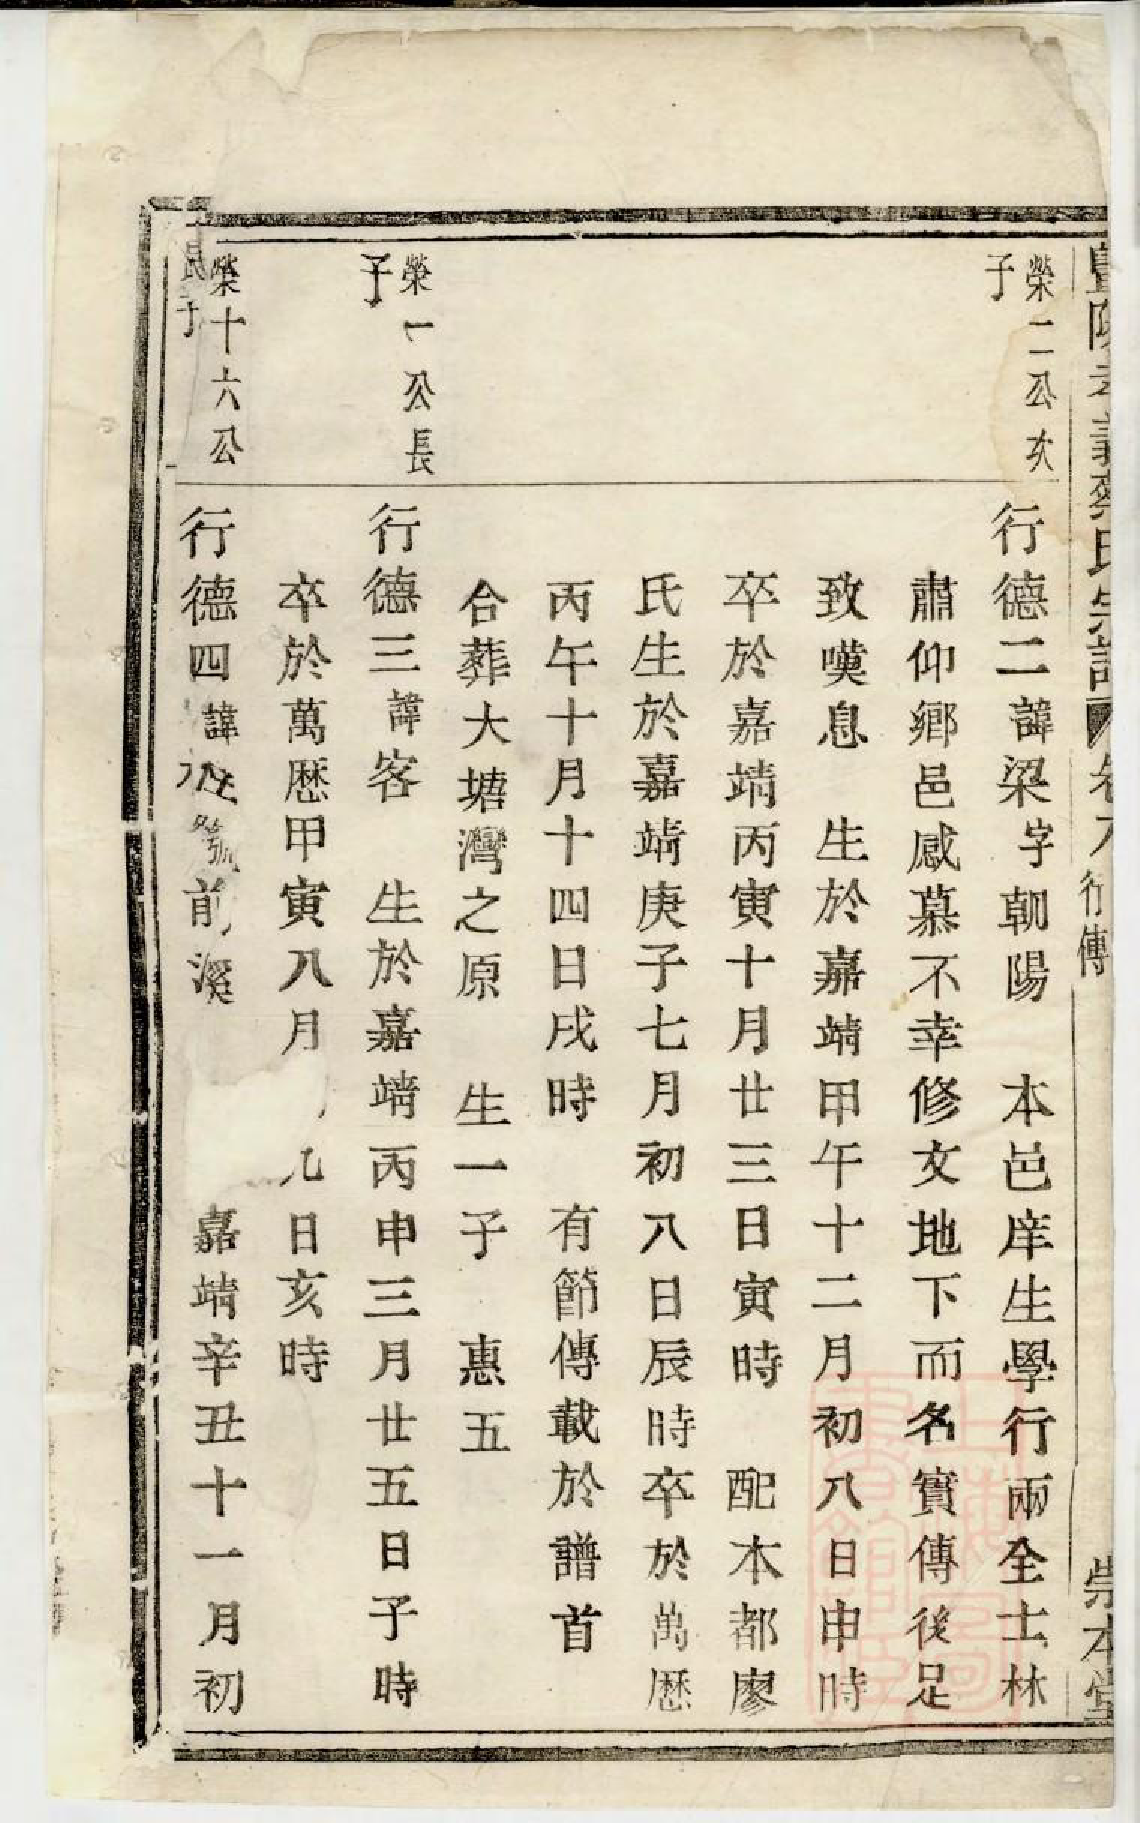 榮二公次
子
行德二諱梁字朝陽 本邑庠生學行兩全士林
肅仰鄉邑感慕不幸修文地下而名實傳後足
致嘆息 生於嘉靖甲午十二月初八日申時
卒於嘉靖丙寅十月廿三日寅時 配本都廖
氏生於嘉靖庚子七月初八日辰時卒於萬歷
丙午十月十四日戌時 有節傳載於譜首
合葬大塘灣之原 生一子 惠五
榮一公長
子
行德三諱客 生於嘉靖丙申三月廿五日子時
卒於萬歷甲寅八月 九日亥時
榮十六公
長子
行德四諱 號前溪 嘉靖辛丑十一月初
義蔡氏宗譜 卷 行傳 崇本堂